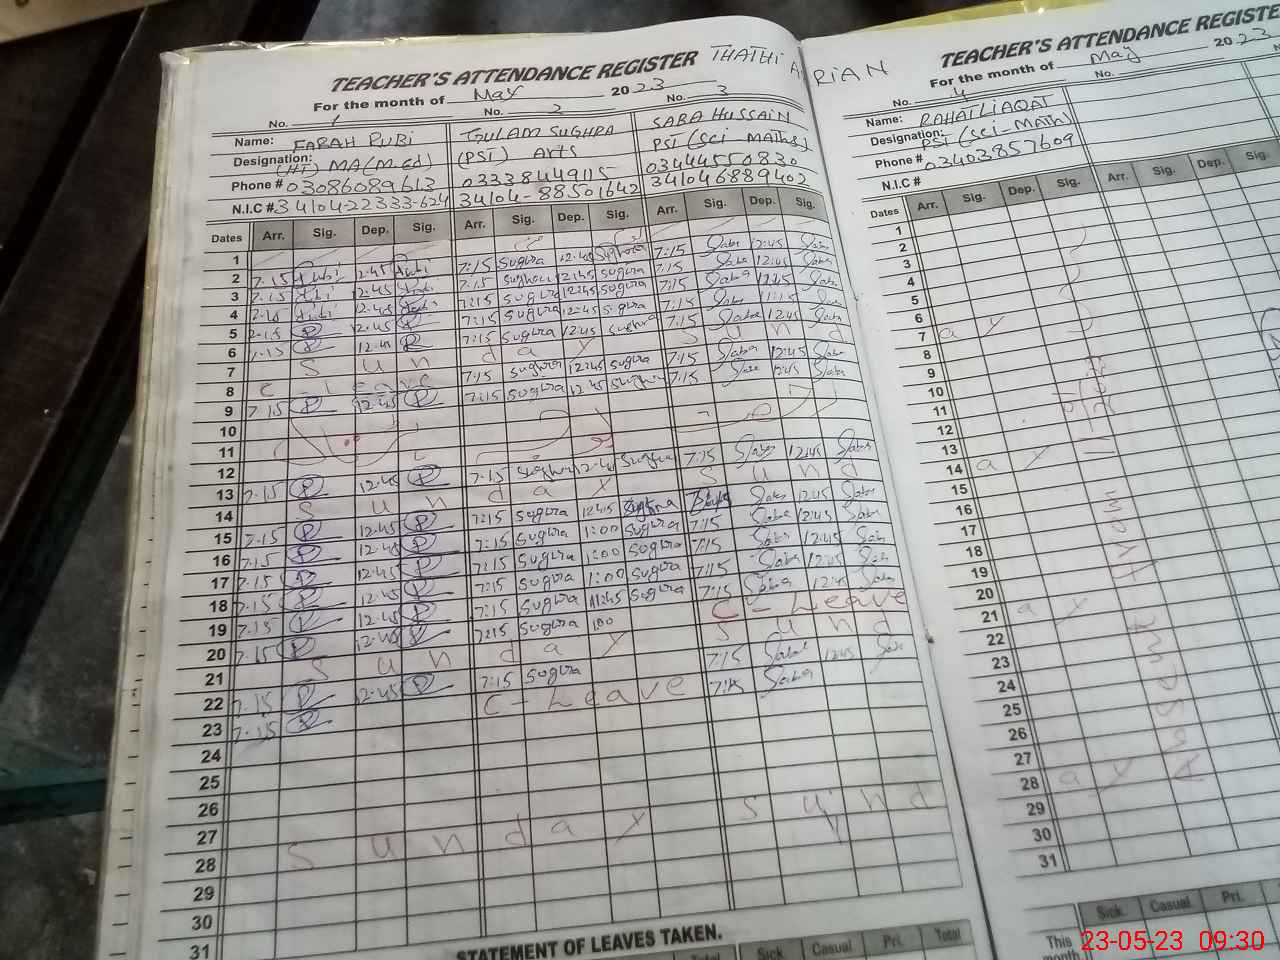 TEACHER'S ATTENDANCE REGISTER THATHI ARIAN
For the month of May 2023
No. 1 No. 2 No. 3
Name: FARAH RUBI GULAM SUGHRA SABA HUSSAIN
Designation: (HT) MA(M.ed) (PST) Arts PST (Sci Maths)
Phone # 03086089613 03338449115 03444550830
N.I.C # 34104-22333-624 34104-88501642 341046889402
Dates Arr. Sig. Dep. Sig. Arr. Sig. Dep. Sig. Arr. Sig. Dep. Sig.
1
2 7.15 12.45 7:15 Sugra 12:45 Sughra 7:15 Saba 12:45 Saba
3 7.15 12.45 7:15 12:45 Sugra 7:15 Saba 12:45 Saba
4 7.15 12.45 7:15 Sugra 12:45 Sugra 7:15 Saba Saba
5 7.15 12.45 7:15 Sugra 12:45 Sugra 7:15 Saba 11:15 Saba
6 7.15 12.45 7:15 Sugra 12:45 Sughra 7:15 Saba 12:45 Saba
7 S u n d a y S u n d
8 C - Leave 7:15 Sughra 12:45 Sugra 7:15 Saba 12:45 Saba
9 7.15 12.45 7:15 Sugra 12:45 Sughra 7:15 Saba 12:45 Saba
10
11
12
13 7.15 12.45 7.15 Sughra 12:45 Sughra 7:15 Saba 12:45 Saba
14 S u n d a y S u n d
15 7.15 12.45 7:15 Sugra 12:45 Sughra Saba 12:45 Saba
16 7.15 12.45 7:15 Sugra 1:00 Sugra 7:15 Saba 12:45 Saba
17 7.15 12.45 7:15 Sugra 1:00 Sugra 7:15 Saba 12:45 Saba
18 7.15 12.45 7:15 Sugra 1:00 Sugra 7:15 Saba 12:45 Saba
19 7.15 12.45 7:15 Sugra Sugra 7:15 Saba 12:45 Saba
20 7.15 12.45 7:15 Sugra 1:00 C - Leave
21 S u n d a y S u n d
22 7.15 12.45 7:15 Sugra 7:15 Saba 12:45 Saba
23 7.15 C - Leave 7:15 Saba
24
25
26
27
28 S u n d a y S u n d
29
30
31
STATEMENT OF LEAVES TAKEN.
Sick Casual Pri. Total
TEACHER'S ATTENDANCE REGISTE
For the month of May 2023
No. 4 No.
Name: RAHAT LIAQAT
Designation: PST (Sci-Math)
Phone # 03403857609
N.I.C #
Dates Arr. Sig. Dep. Sig. Arr. Sig. Dep. Sig.
1
2
3
4
5
6
7 a y
8
9
10
11
12
13
14 a y
15
16
17
18
19
20
21 a y
22
23
24
25
26
27
28 a y
29
30
31
Sick. Casual Pri.
This month
23-05-23 09:30